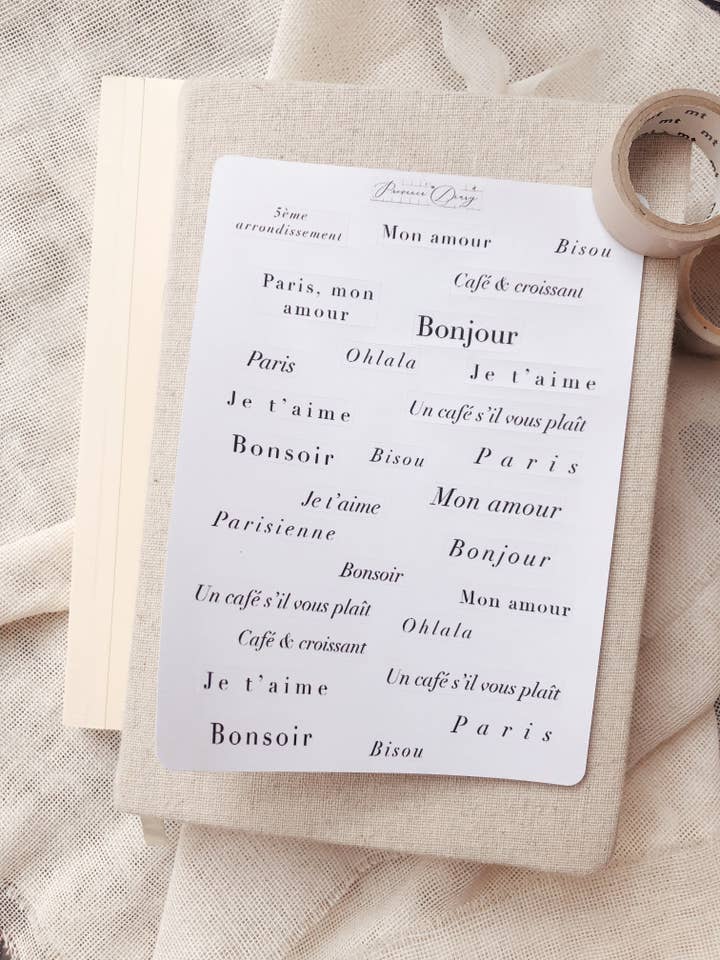 Provence Diary
mt
mt
5ème
arrondissement
Mon amour
Bisou
Café & croissant
Paris, mon
amour
Bonjour
Paris
Ohlala
Je t’aime
Je t’aime
Un café s’il vous plaît
Bonsoir
Bisou
Paris
Je t’aime
Mon amour
Parisienne
Bonjour
Bonsoir
Un café s’il vous plaît
Mon amour
Ohlala
Café & croissant
Je t’aime
Un café s’il vous plaît
Paris
Bonsoir
Bisou